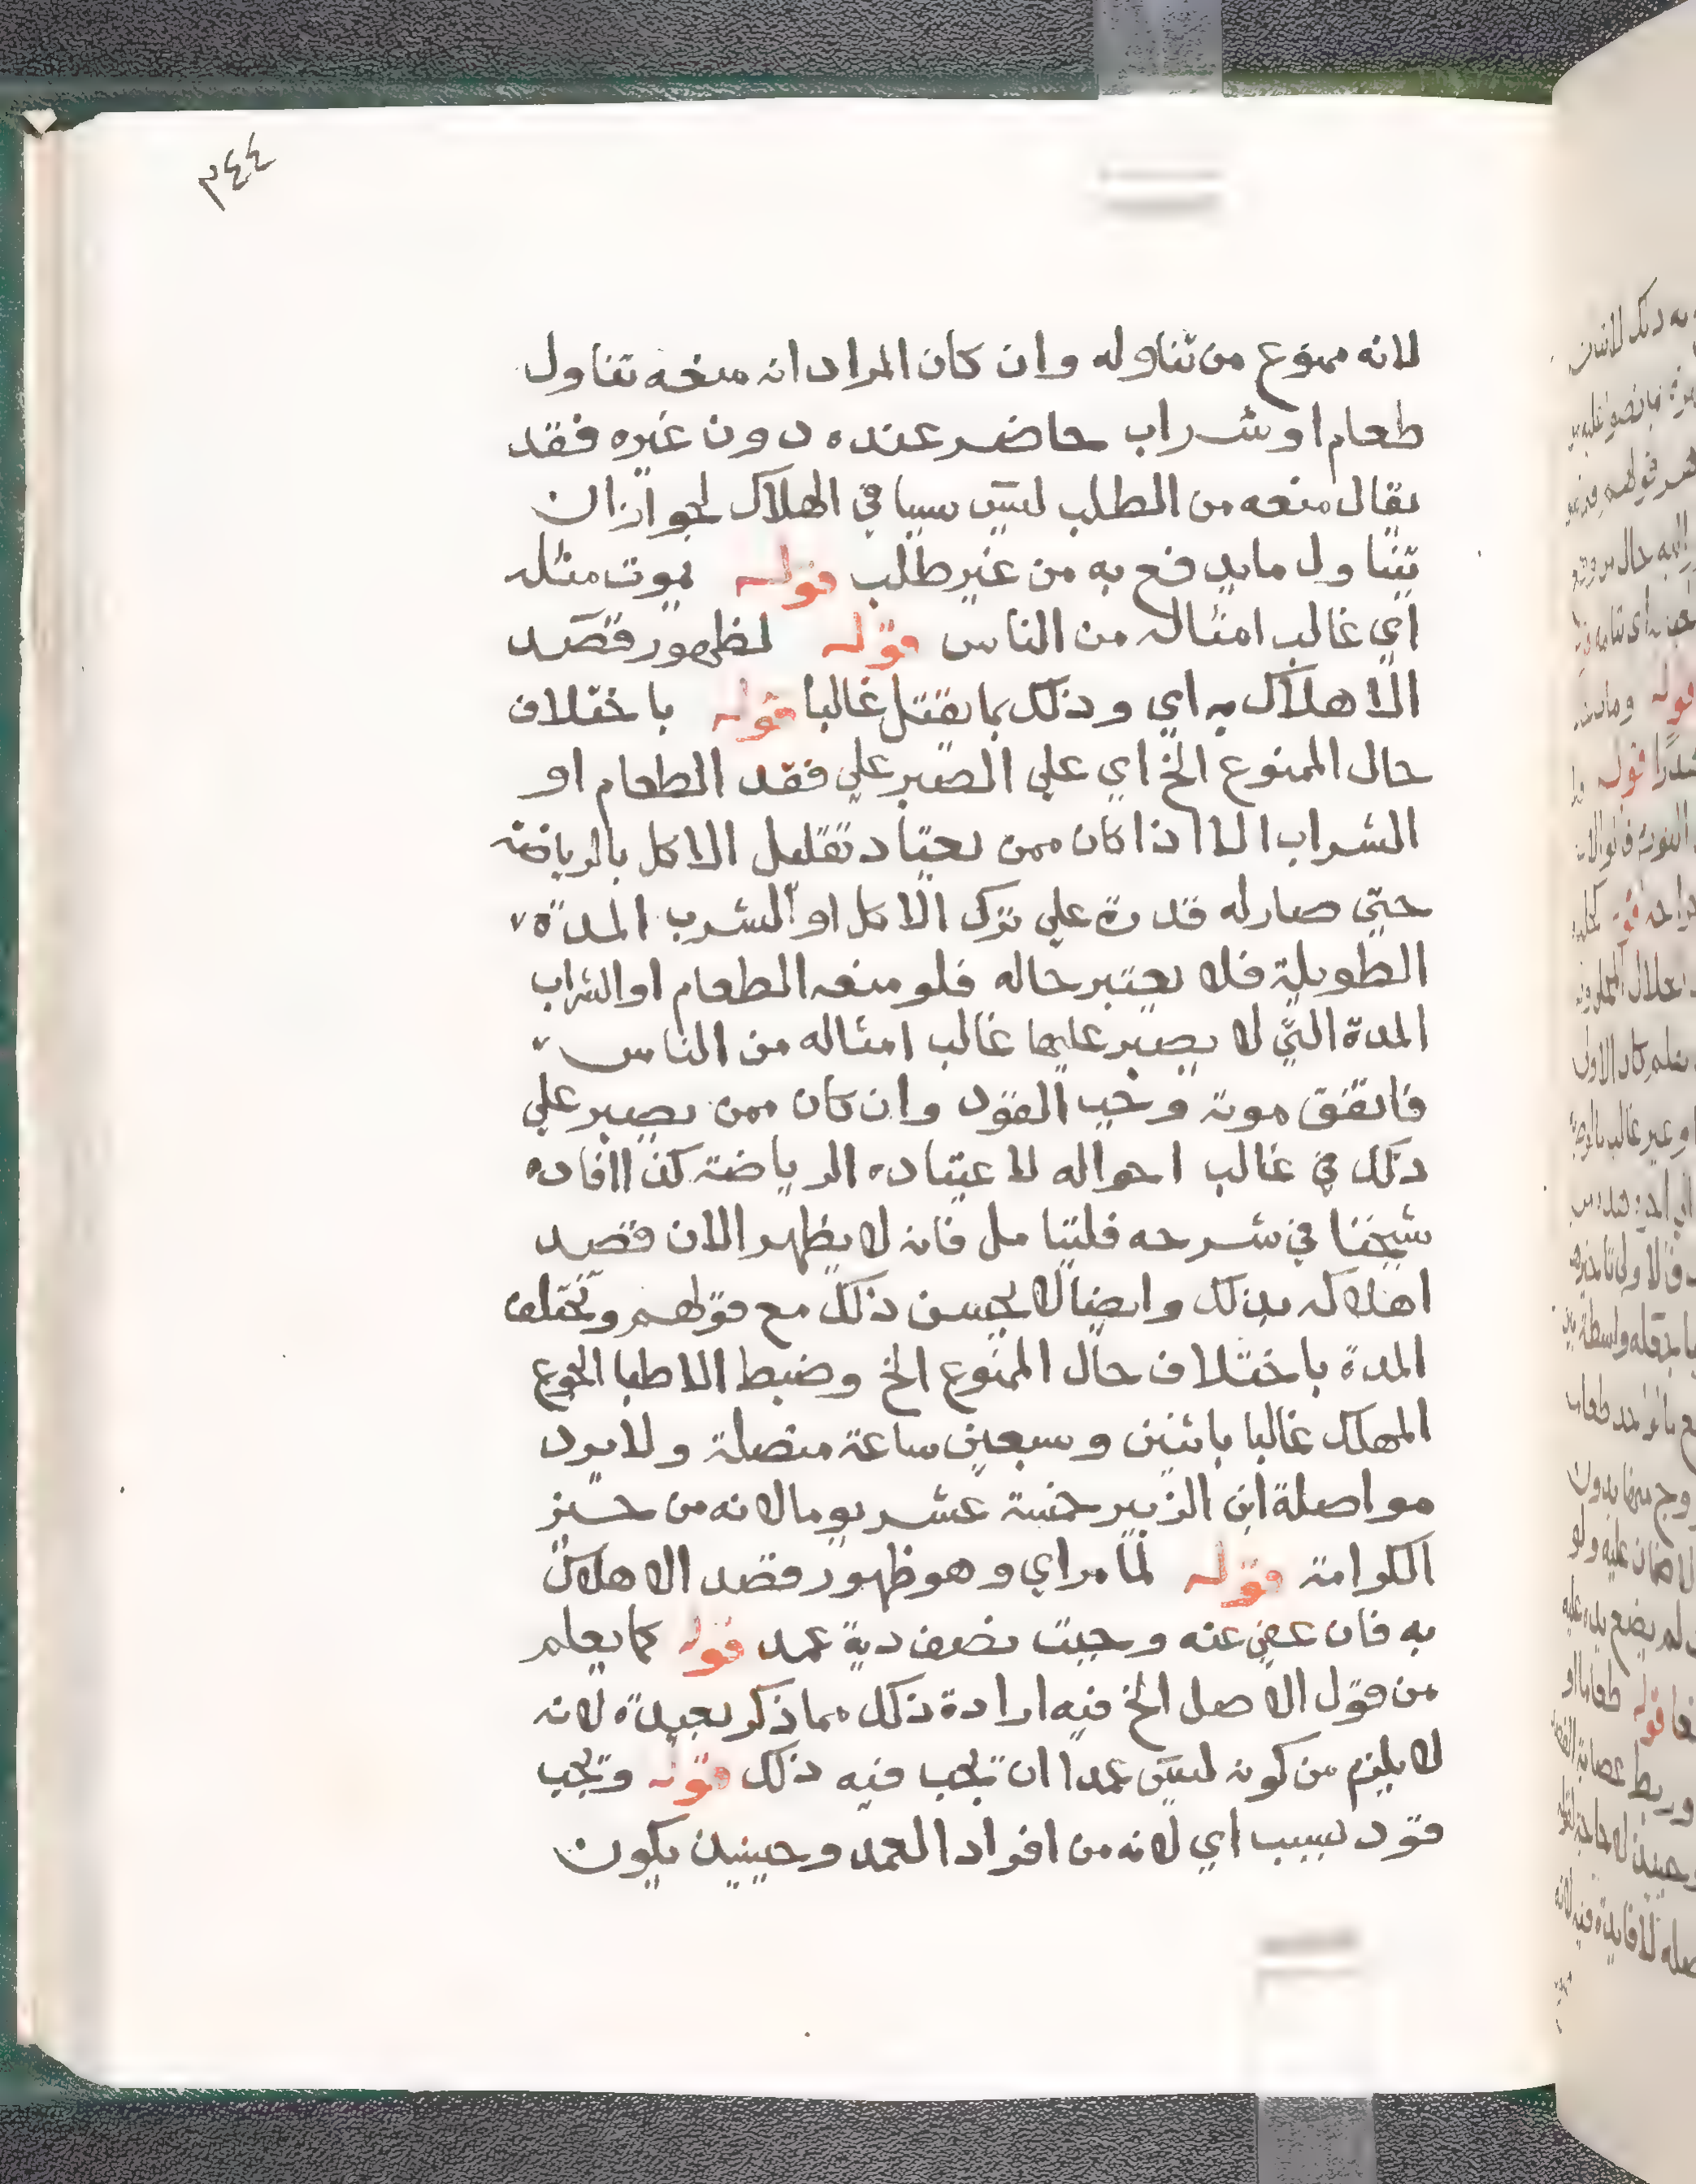 ٣٤٤
لانه ممنوع من تناوله وان كان المراد انه منعه تناول
طعام او شراب حاضر عنده دون غيره فقد
يقال منعه من الطلب ليس سببا في الهلاك لجواز ان
يتناول ما يدفع به من غير طلب قوله يموت مثله
اي غالب امثاله من الناس قوله لظهور قصد
الاهلاك به اي وذلك بما يقتل غالبا قوله باختلاف
حال الممنوع الخ اي علي الصبر علي فقد الطعام او
الشراب الا اذا كان ممن يعتاد تقليل الاكل بالرياضة
حتي صار له قدرة علي ترك الاكل او الشرب المدة
الطويلة فلا يعتبر حاله فلو منعه الطعام او الشراب
المدة التي لا يصبر عليها غالب امثاله من الناس
فاتفق موته وجب القود وان كان ممن يصبر علي
ذلك في غالب احواله لاعتياده الرياضة كذا افاده
شيخنا في شرحه فليتامل فانه لا يظهر الان قصد
اهلاكه بذلك وايضا لا يحسن ذلك مع قولهم وتختلف
المدة باختلاف حال الممنوع الخ وضبط الاطبا الجوع
المهلك غالبا باثنين وسبعين ساعة متصلة ولا يرد
مواصلة ابن الزبير خمسة عشر يوما لانه من حيز
الكرامة قوله لما مر اي وهو ظهور قصد الاهلاك
به فان عفي عنه وجبت نصف دية عمد قوله كما يعلم
من قول الاصل الخ فيه ارادة ذلك مما ذكر بعيدة لانه
لا يلزم من كونه ليس عمدا ان تجب فيه ذلك قوله ويجب
قود بسبب اي لانه من افراد العمد وحينيذ يكون